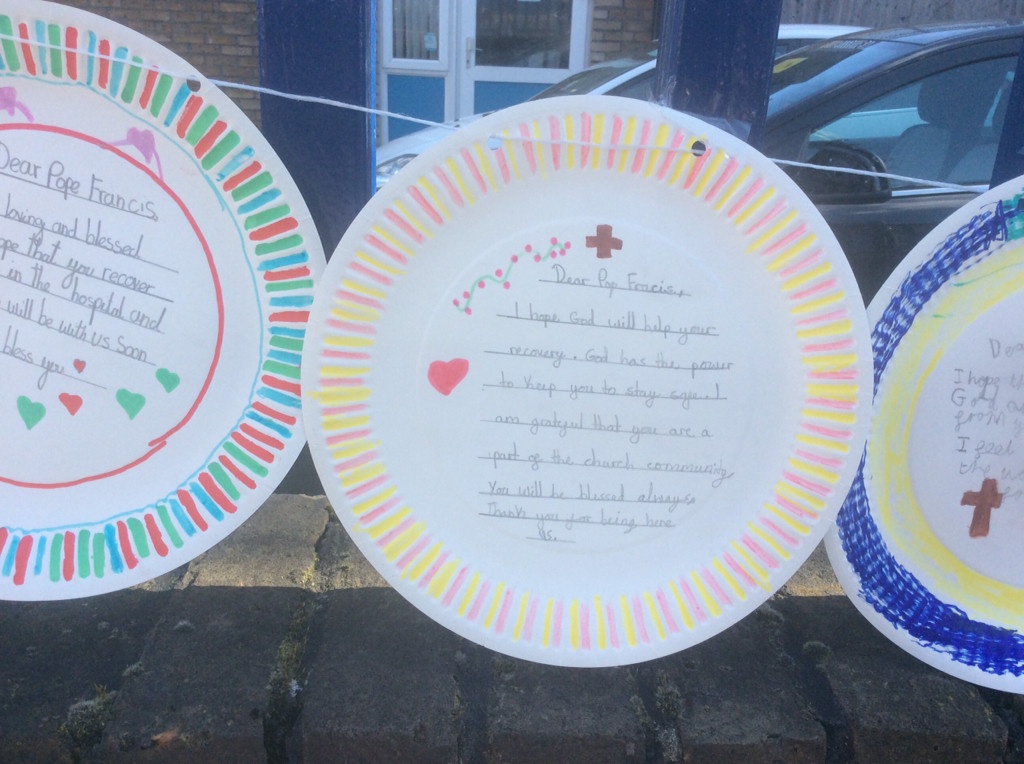 Dear Pope Francis,
loving and blessed
that you recover
in the hospital and
will be with us soon
bless you
Dear Pop Francis,
I hope God will help your
recovery. God has the power
to keep you to stay
am grateful that you are a
part of the church community
You will be blessed always
Thank you for being here
us.
I hope
God
from
I feel
the